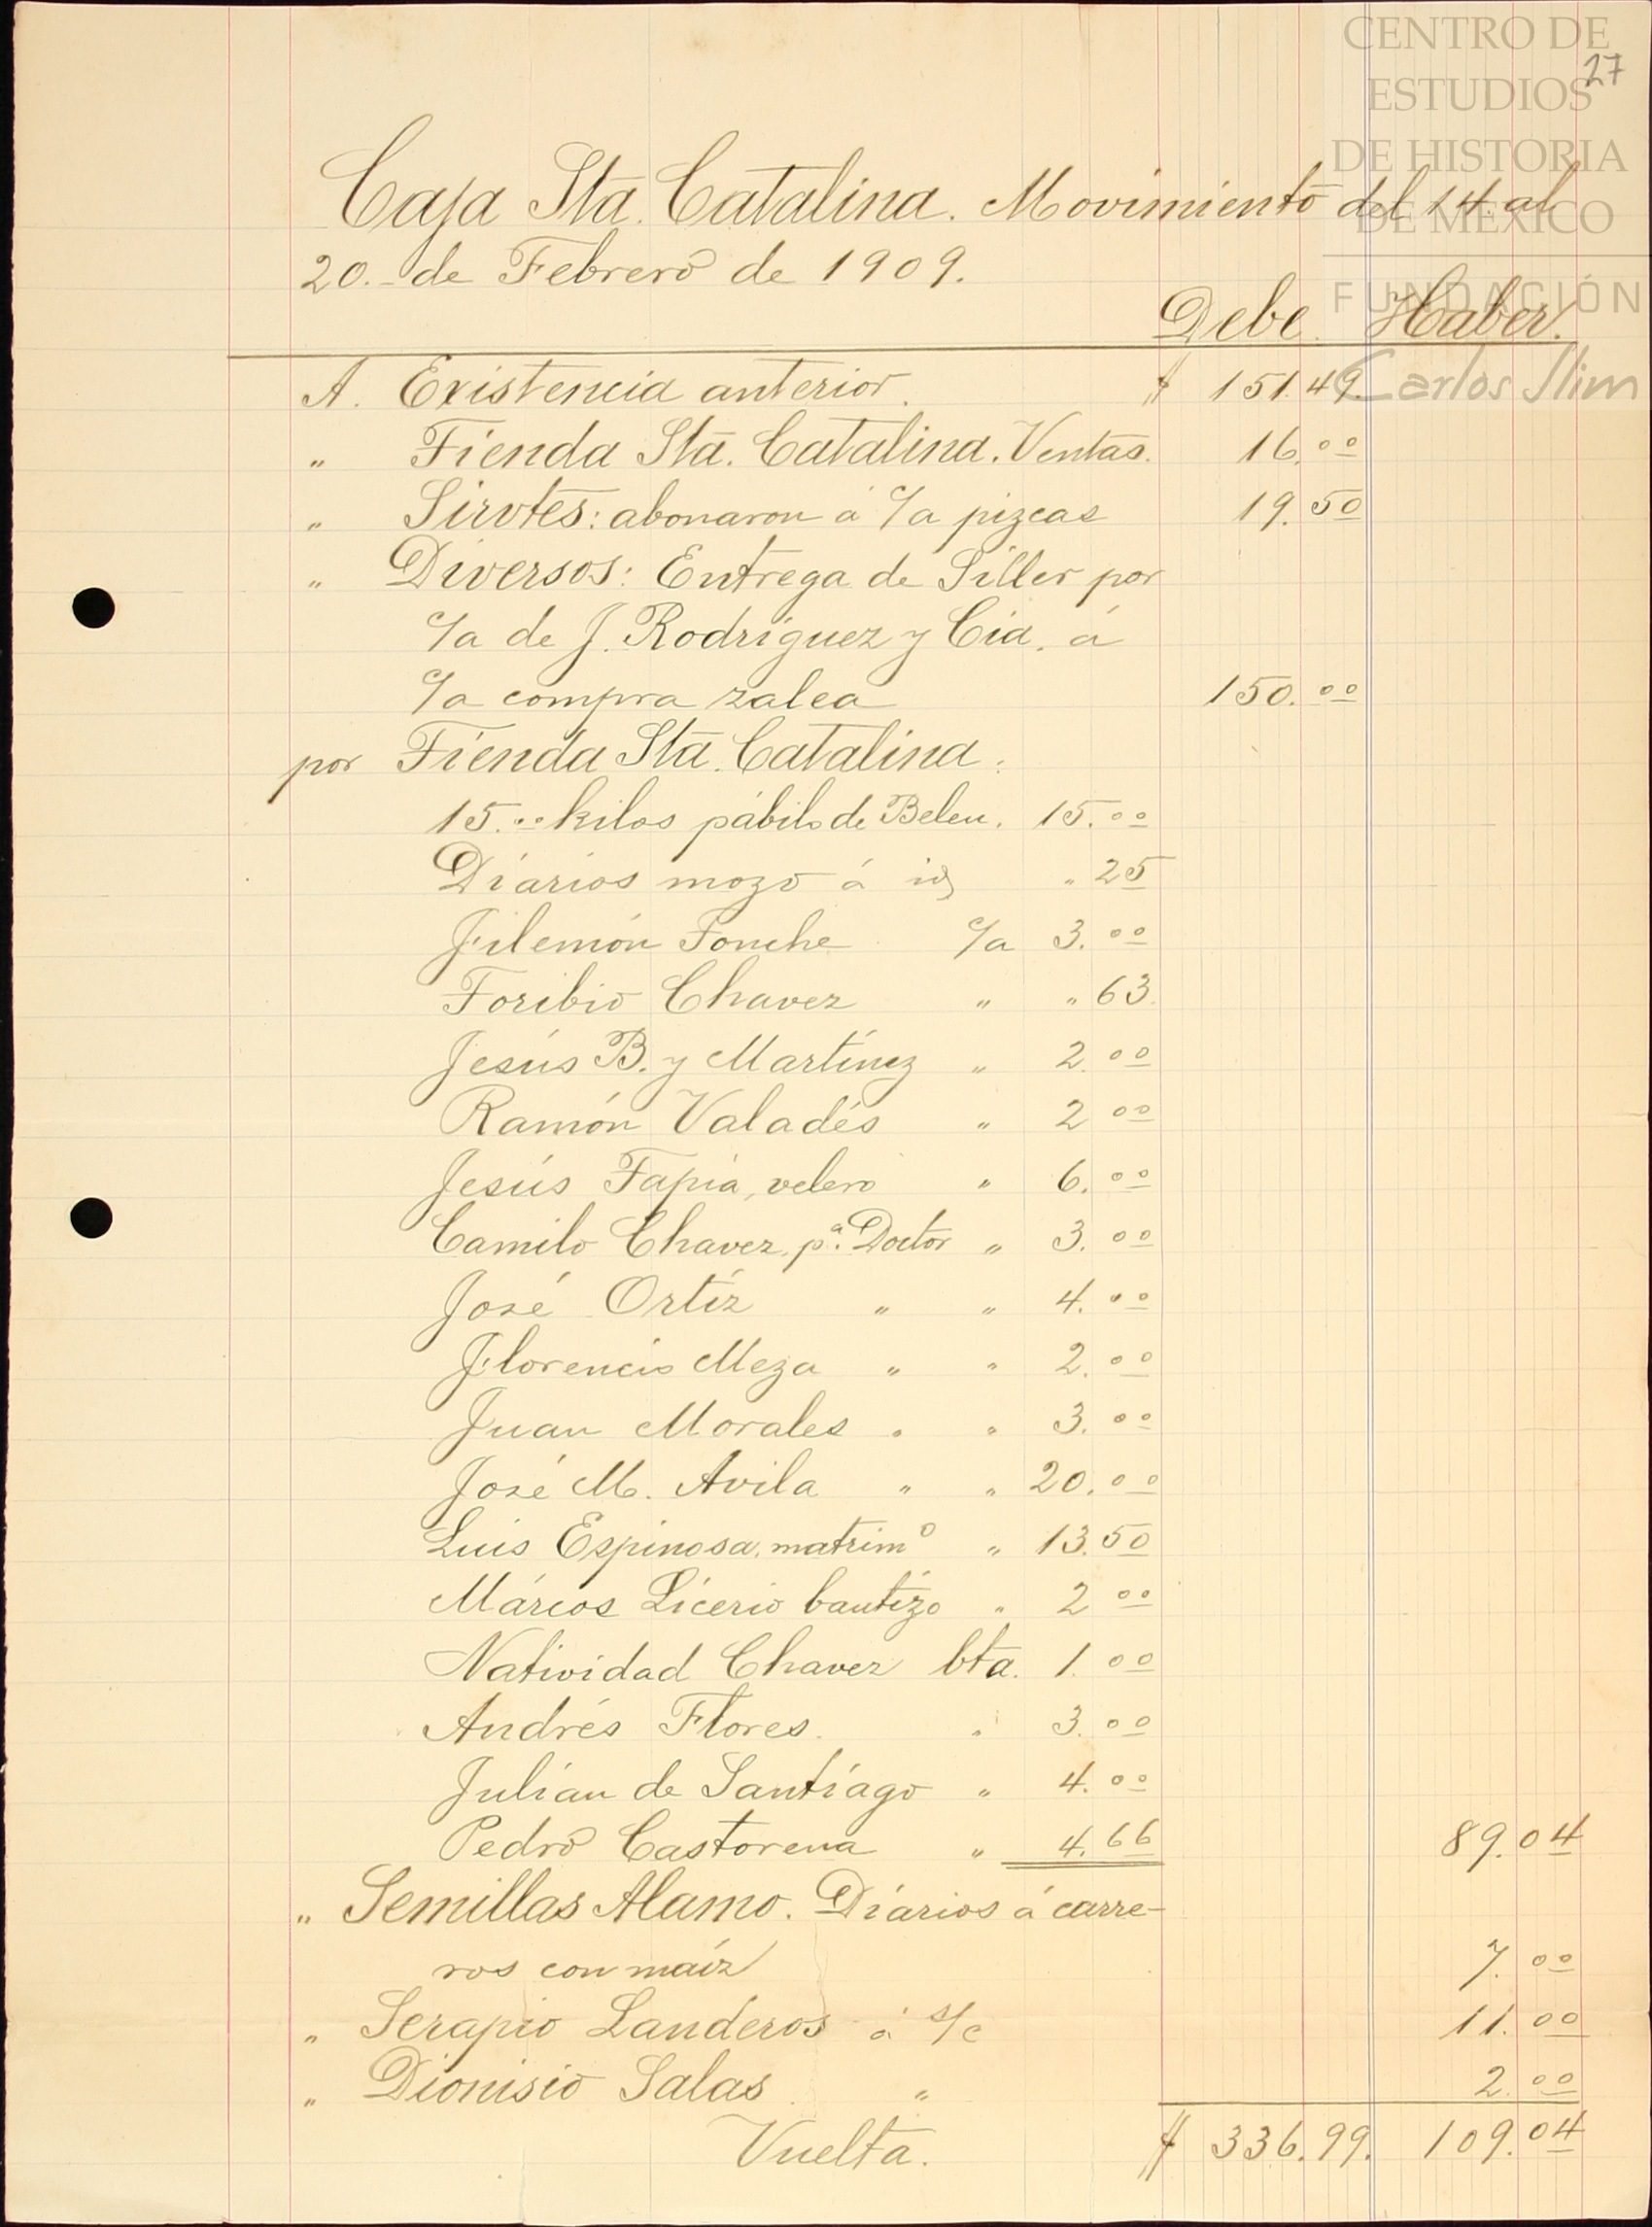 CENTRO DE
ESTUDIOS
DE HISTORIA
DE MEXICO
FUNDACIÓN
Carlos Slim
27
Caja Sta. Catalina. Movimiento del 14. al
20. de Febrero de 1909.
Debe Haber.
A. Existencia anterior. $ 151.49.
" Tienda Sta. Catalina. Ventas. 16.00
" Sirvtes: abonaron á c/a pizcas 19.50
" Diversos: Entrega de Siller por
c/a de J. Rodríguez y Cia. á
c/a compra zalea 150.00
por Tienda Sta. Catalina:
15.00 kilos pábilo de Belen. 15.00
Diarios mozo á id " 25
Filemón Tonche c/a 3.00
Toribio Chavez " " 63.
Jesús B. y Martínez " 2.00
Ramón Valadés " 2 00
Jesús Tapia, velero " 6.00
Camilo Chavez, pa. Doctor " 3.00
José Ortíz " " 4.00
Florencio Meza " " 2.00
Juan Morales " " 3.00
José M. Avila " " 20.00
Luis Espinosa, matrimo " 13.50
Márcos Licerio bautizo " 2 00
Natividad Chavez bta. 1.00
Andrés Flores. " 3.00
Julian de Santiago " 4.00
Pedro Castorena " 4.66 89.04
" Semillas Alamo. Diarios á carre-
ros con maíz 7.00
" Serapio Landeros á s/c 11.00
" Dionisio Salas " 2.00
Vuelta. $ 336.99. 109.04